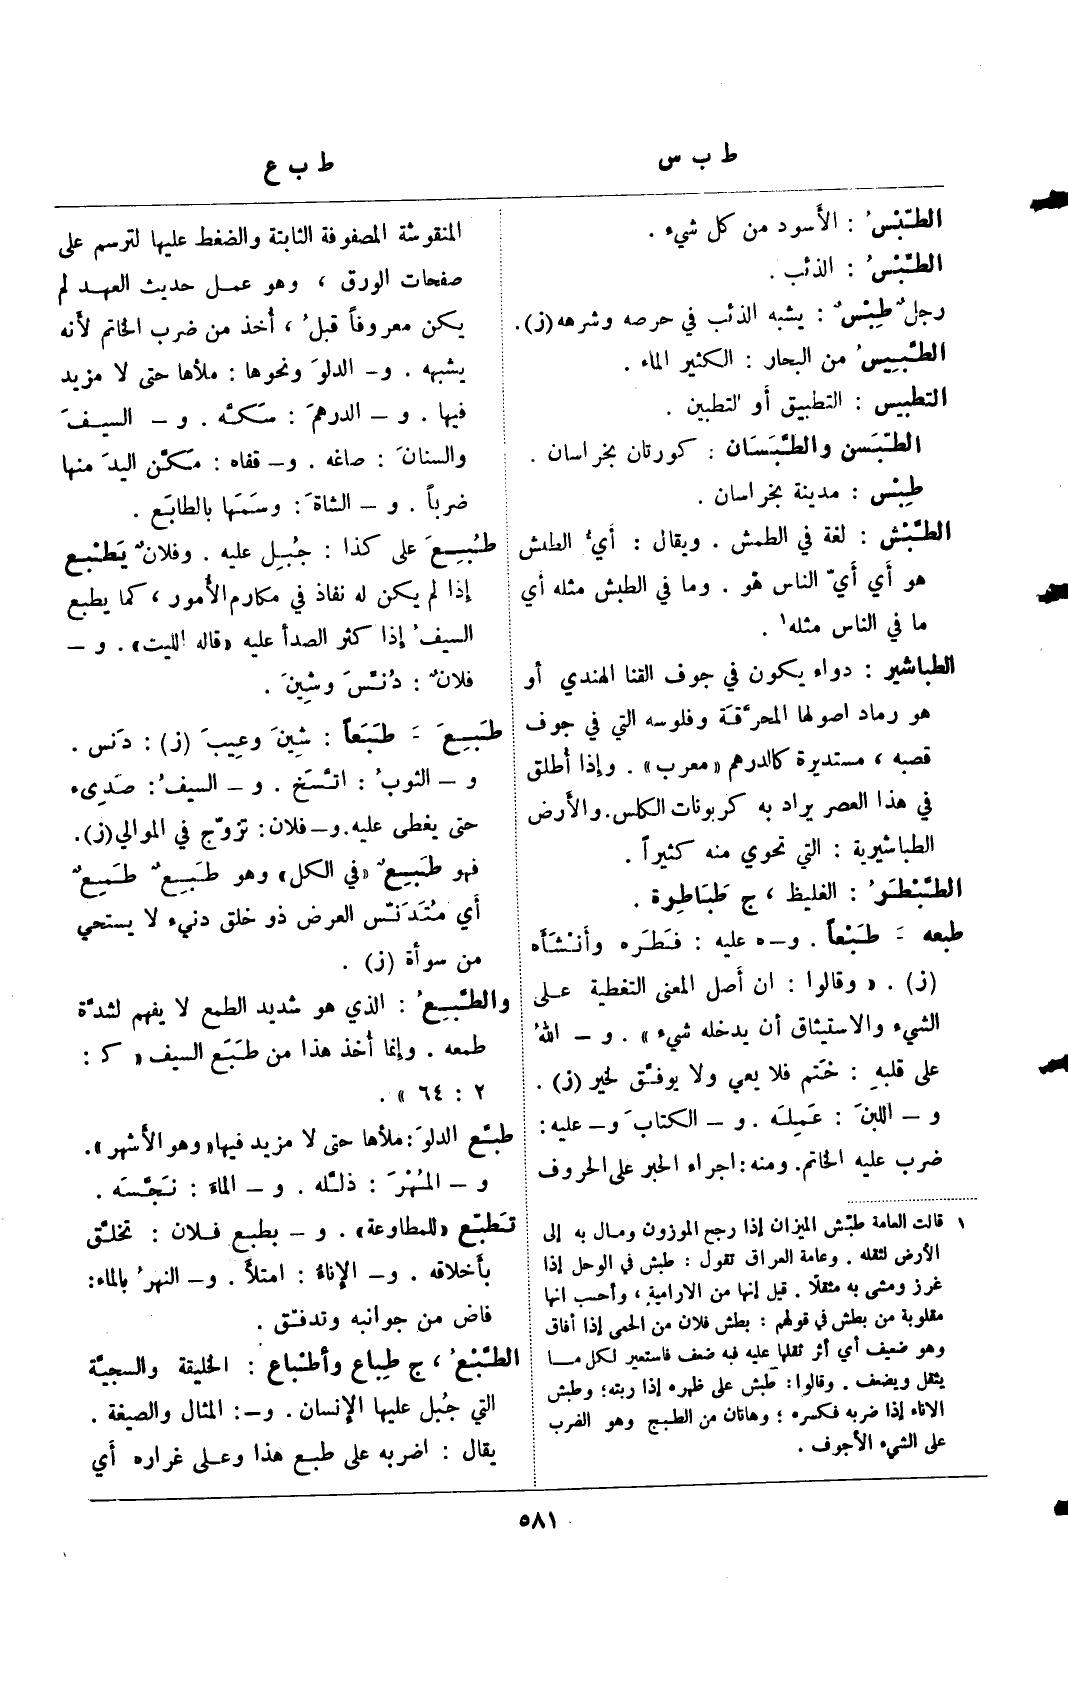 ط ب س
ط ب ع
الطَّبْسُ : الأَسود من كل شيء .
الطِّبْسُ : الذئب .
رجلٌ طِبْسٌ : يشبه الذئب في حرصه وشرهه (ز).
الطَّبِيسُ من البحار : الكثير الماء .
التطبيس : التطبيق أو التطبين .
الطَّبَسن والطَّبَسَان : كورتان بخراسان .
طِبْس : مدينة بخراسان .
الطَّبْش : لغة في الطمش . ويقال : أَيُّ الطبش
هو أَي أَيّ الناس هُو . وما في الطبش مثله أي
ما في الناس مثله١ .
الطباشير : دواء يكون في جوف القنا الهندي أو
هو رماد اصولها المحرَّقة وفلوسه التي في جوف
قصبه ، مستديرة كالدرهم «معرب» . وإذا أُطلق
في هذا العصر يراد به كربونات الكلس. والأَرض
الطباشيرية : التي تحوي منه كثيراً .
الطَّبْطَوُ : الغليظ ، ج طَبَاطِوة .
طبعه َ طَبْعاً . و–ه عليه : فَطَره وأَنْشَأَه
(ز) . « وقالوا : ان أَصل المعنى التغطية على
الشيء والاستيثاق أن يدخله شيء » . و – اللهُ
على قلبهِ : خَتم فلا يعي ولا يوفَّق لخير (ز) .
و – اللبنَ : عَمِلَه . و – الكتابَ و– عليه :
ضرب عليه الخاتم. ومنه : اجراء الحبر على الحروف
١ قالت العامة طبّش الميزان إذا رجح الموزون ومال به إلى
الأرض لثقله . وعامة العراق تقول : طبش في الوحل إذا
غرز ومشى به مثقلًا . قيل إنها من الارامية ، وأحسب انها
مقلوبة من بطش في قولهم : بطش فلان من الحمى إذا أفاق
وهو ضعيف أي أثر ثقلها عليه فبه ضعف فاستعير لكل مـا
يثقل ويضعف . وقالوا: طبش على ظهره إذا ربته ؛ وطبش
الاناء إذا ضربه فكسره ؛ وهاتان من الطبج وهو الضرب
على الشيء الأجوف .
المنقوشة المصفوفة الثابتة والضغط عليها لترسم على
صفحات الورق ، وهو عمل حديث العهد لم
يكن معروفاً قبلُ ، أُخذ من ضرب الخاتم لأَنه
يشبهه . و– الدلوَ ونحوها : ملأها حتى لا مزيد
فيها . و – الدرهمَ : سَكَّه . و – السيفَ
والسنانَ : صاغه . و– قفاه : مَكَّن اليدَ منها
ضرباً . و – الشاةَ : وسَمَها بالطابَع .
طُبِعَ على كذا : جُبِل عليه . وفلانٌ يَطْبع
إذا لم يكن له نفاذ في مكارم الأُمور ، كما يطبع
السيفُ إذا كثر الصدأ عليه «قاله الليت» . و –
فلانٌ : دُنِّسَ وشِينَ .
طَبِعَ َ طَبَعاً : شِينَ وعِيبَ (ز) : دَنس .
و – الثوبُ : اتَّسَخ . و – السيفُ : صَدِىء
حتى يغطى عليه. و– فلان : تزوّج في الموالي (ز).
فهو طَبِعٌ «في الكل» وهو طَبِعٌ طَمِعٌ
أَي مُتَدَنّس العرض ذو خلق دنيء لا يستحي
من سوأة (ز) .
والطَّبِعُ : الذي هو شديد الطمع لا يفهم لشدَّة
طمعه . وإنما أُخذ هذا من طَبَع السيف « ك :
٢ : ٦٤ » .
طبَّع الدلوَ : ملأها حتى لا مزيد فيها «وهو الأشهر».
و – المُهْرَ : ذلَّله . و – الماءَ : نَجَّسَه .
تَطبّع «للمطاوعة» . و – بطبع فلان : تخلَّق
بأخلاقه . و– الإناءُ : امتلأَ . و– النهرُ بالماء :
فاض من جوانبه وتدفّق .
الطَّبْعُ ، ج طِباع وأَطْباع : الخليقة والسجيَّة
التي جُبل عليها الإنسان . و–: المثال والصيغة .
يقال : اضربه على طبع هذا وعلى غراره أي
٥٨١